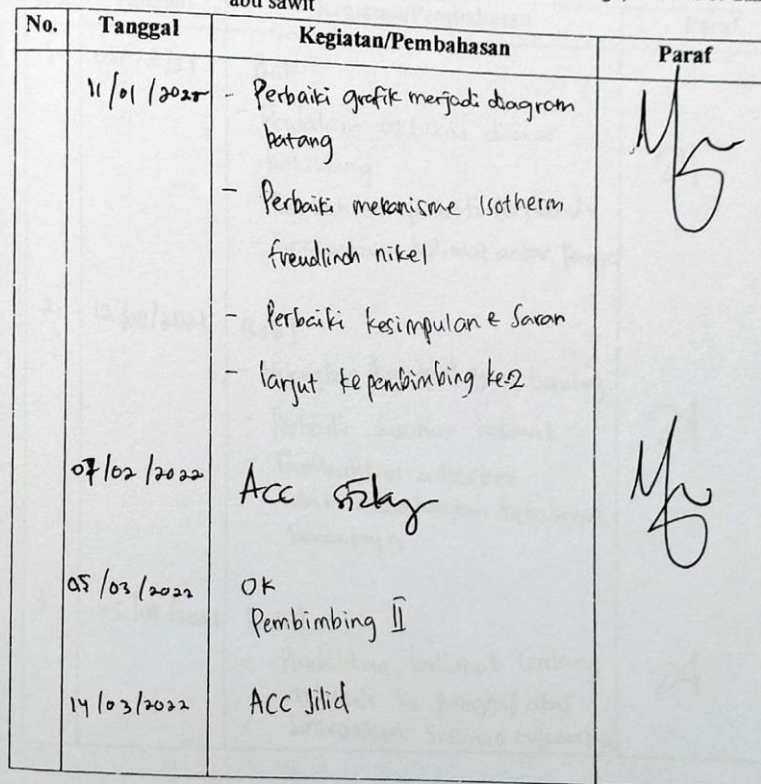 abu sawit
No. Tanggal Kegiatan/Pembahasan Paraf
11/01/2022 - Perbaiki grafik menjadi diagram
batang
- Perbaiki mekanisme Isotherm
freudlinch nikel
- Perbaiki kesimpulan & Saran
- lanjut ke pembimbing ke-2
07/02/2022 ACC
05/03/2022 OK
Pembimbing II
14/03/2022 ACC Jilid